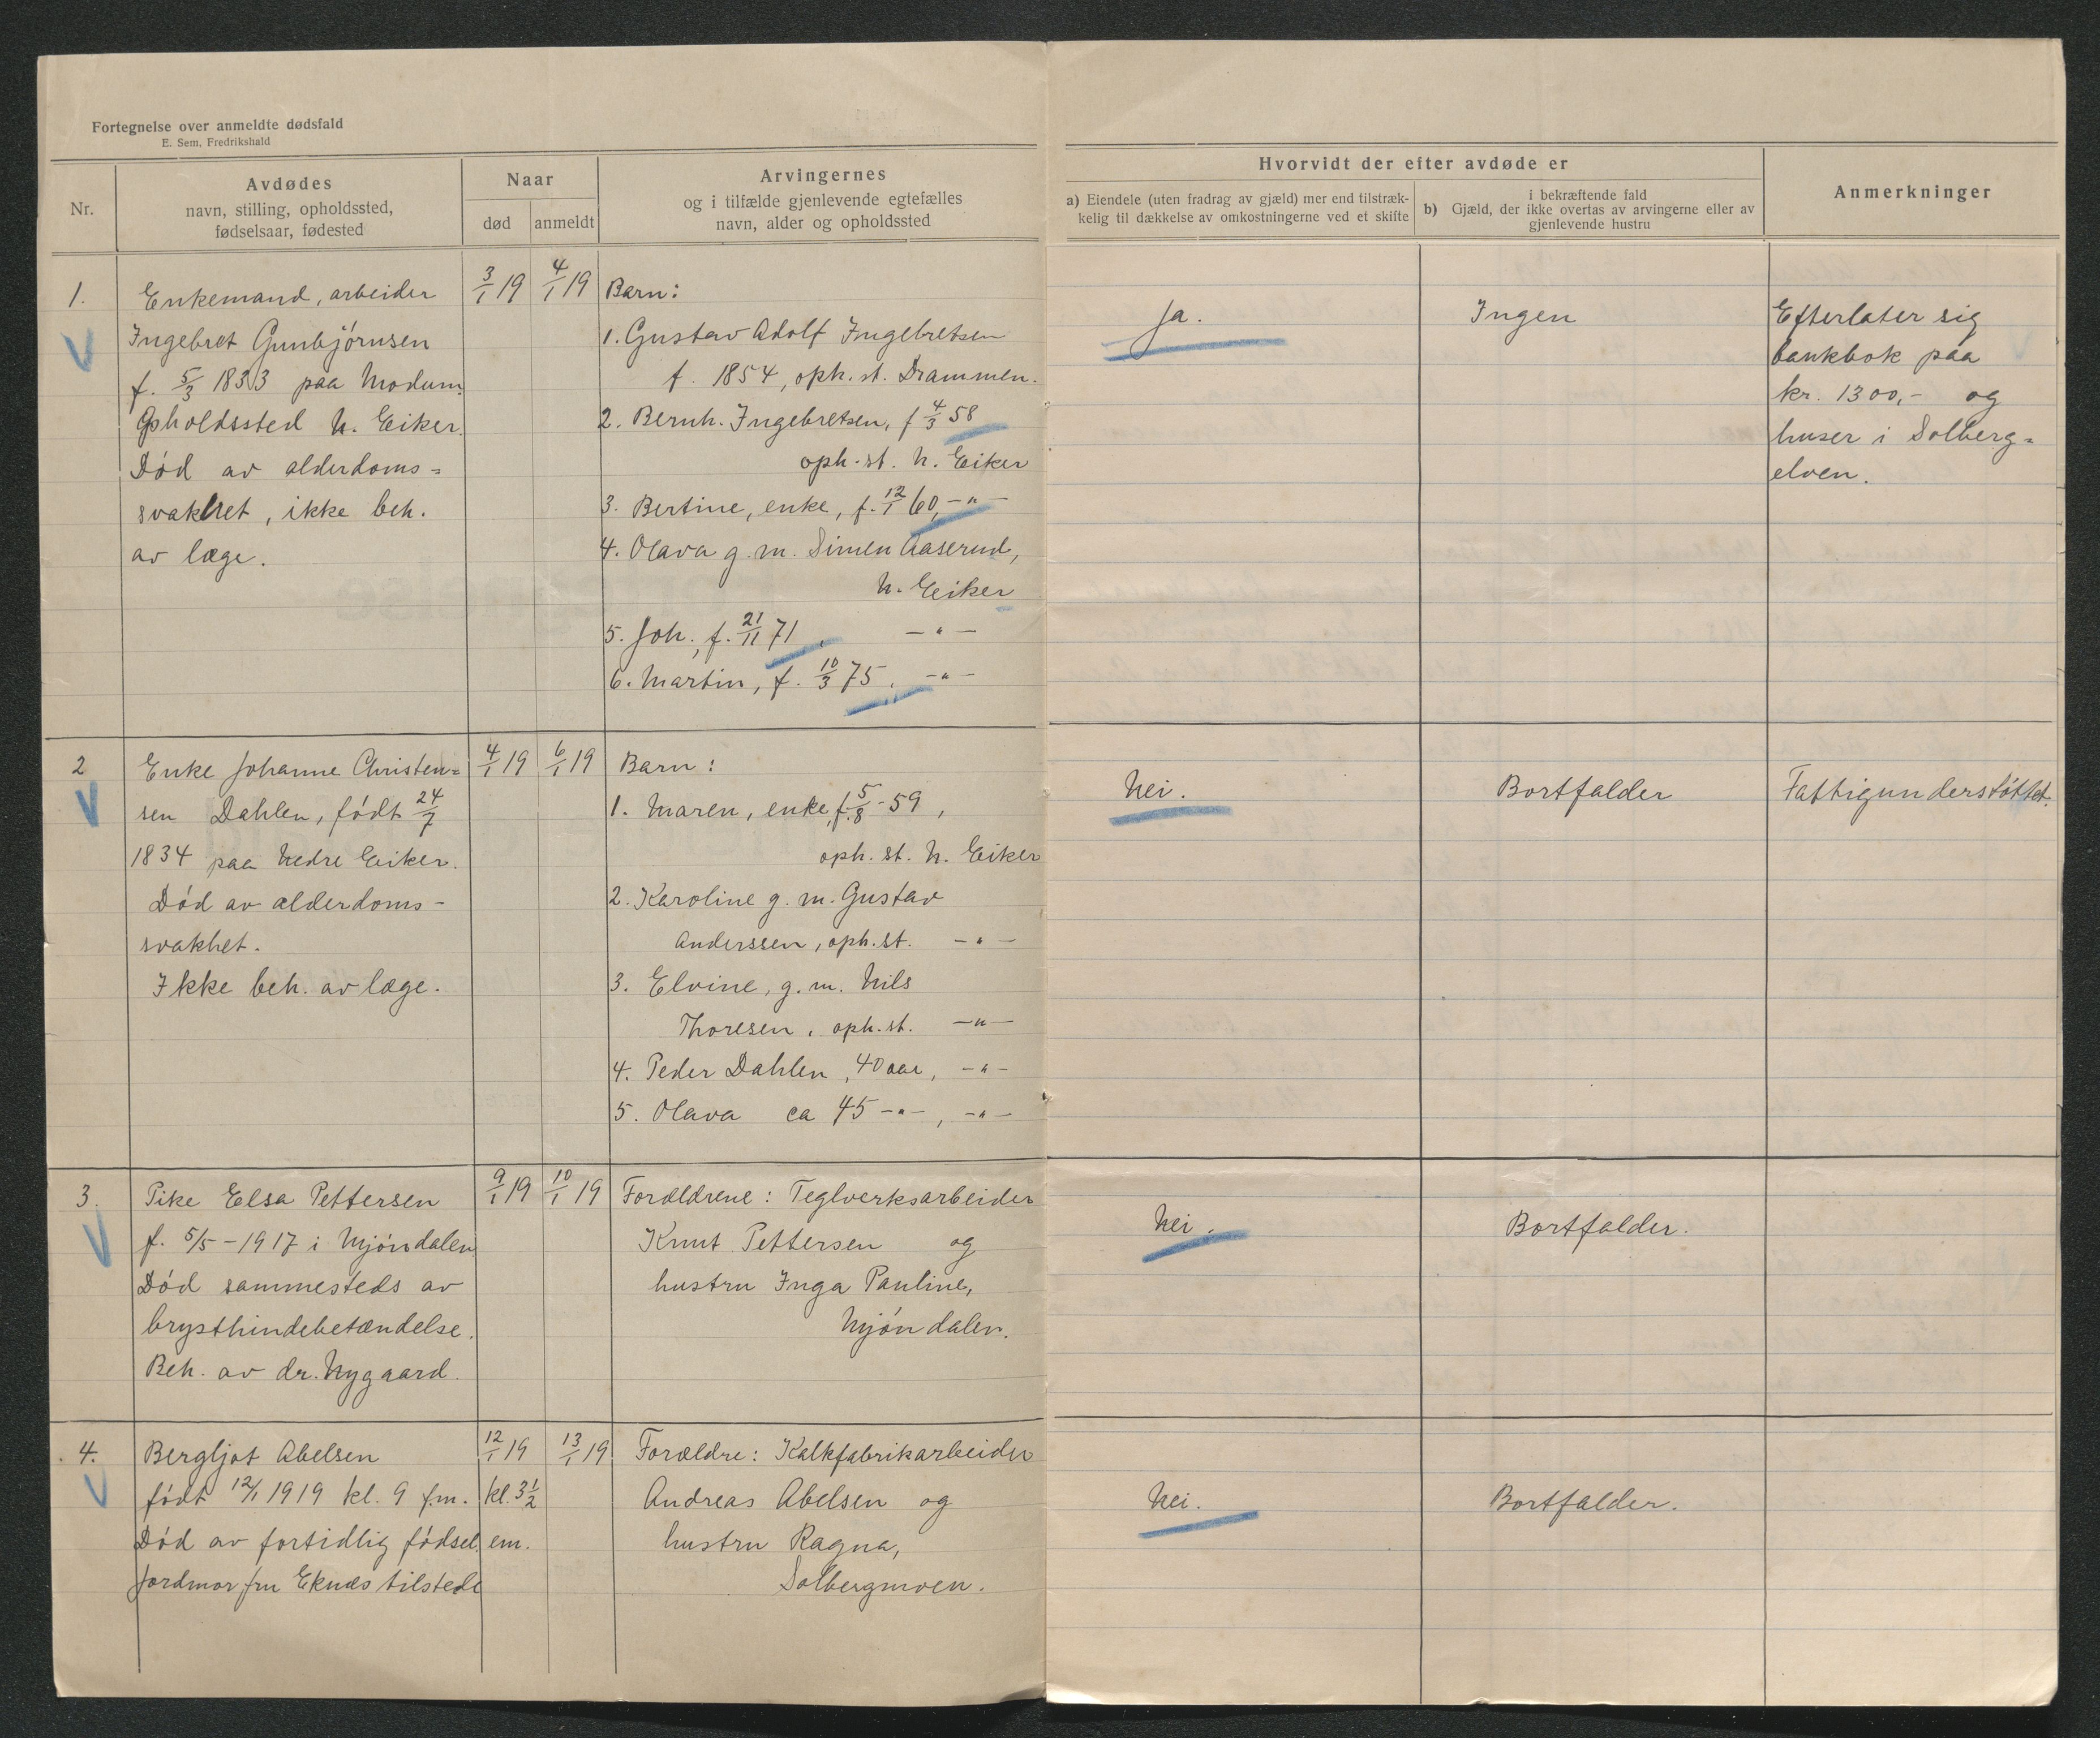 Fortegnelse over anmeldte dødsfald
E. Sem, Fredrikshald
Nr.
Avdødes
navn, stilling, opholdssted,
fødselsaar, fødested
Naar
død
anmeldt
Arvingernes
og i tilfælde gjenlevende egtefælles
navn, alder og opholdssted
Hvorvidt der efter avdøde er
a) Eiendele (uten fradrag av gjæld) mer end tilstræk-
kelig til dækkelse av omkostningerne ved et skifte
i bekræftende fald
b) Gjæld, der ikke overtas av arvingerne eller av
gjenlevende hustru
Anmerkninger
1.
Enkemand, arbeider
Ingebret Gunbjörnsen
f. 5/3 1833 paa Modum.
Opholdssted N. Eiker.
Död av alderdoms=
svakhet, ikke beh.
av læge.
3/1 19
4/1 19
Barn:
1. Gustav Adolf Ingebretsen
f. 1854, oph. st. Drammen.
2. Bernh. Ingebretsen, f 4/3 58
oph. st. N. Eiker
3. Bertine, enke, f. 12/1 60, -"-
4. Olava g. m. Simen Aaserud,
N. Eiker
5. Joh., f. 21/11 71, -"-
6. Martin, f. 10/3 75, -"-
Ja.
Ingen
Efterlater sig
bankbok paa
kr. 1300,- og
huser i Solberg=
elven.
2
Enke Johanne Christen=
sen Dahlen, födt 24/7
1834 paa Nedre Eiker.
Död av alderdoms-
svakhet.
Ikke beh. av læge.
4/1 19
6/1 19
Barn:
1. Maren, enke, f. 5/8 - 59,
oph. st. N. Eiker
2. Karoline g. m. Gustav
Anderssen, oph. st. -"-
3. Elvine, g. m. Nils
Thoresen, oph. st. -"-
4. Peder Dahlen, 40 aar, -"-
5. Olava ca 45 -"-, -"-
Nei.
Bortfalder
Fattigunderstöttet.
3.
Pike Elsa Pettersen
f. 5/5 - 1917 i Mjöndalen
Död sammesteds av
brysthindebetændelse.
Beh. av dr. Nygaard.
9/1 19
10/1 19
Forældrene: Teglverksarbeider
Knut Pettersen og
hustru Inga Pauline,
Mjöndalen.
Nei.
Bortfalder.
4.
Bergljot Abelsen
födt 12/1 1919 kl. 9 f.m.
Död av fortidlig födsel.
Jordmor fru Eknes tilstede
12/1 19
kl. 3 1/2
em.
13/1 19
Forældre: Kalkfabrikarbeider
Andreas Abelsen og
hustru Ragna,
Solbergmoen.
Nei.
Bortfalder.